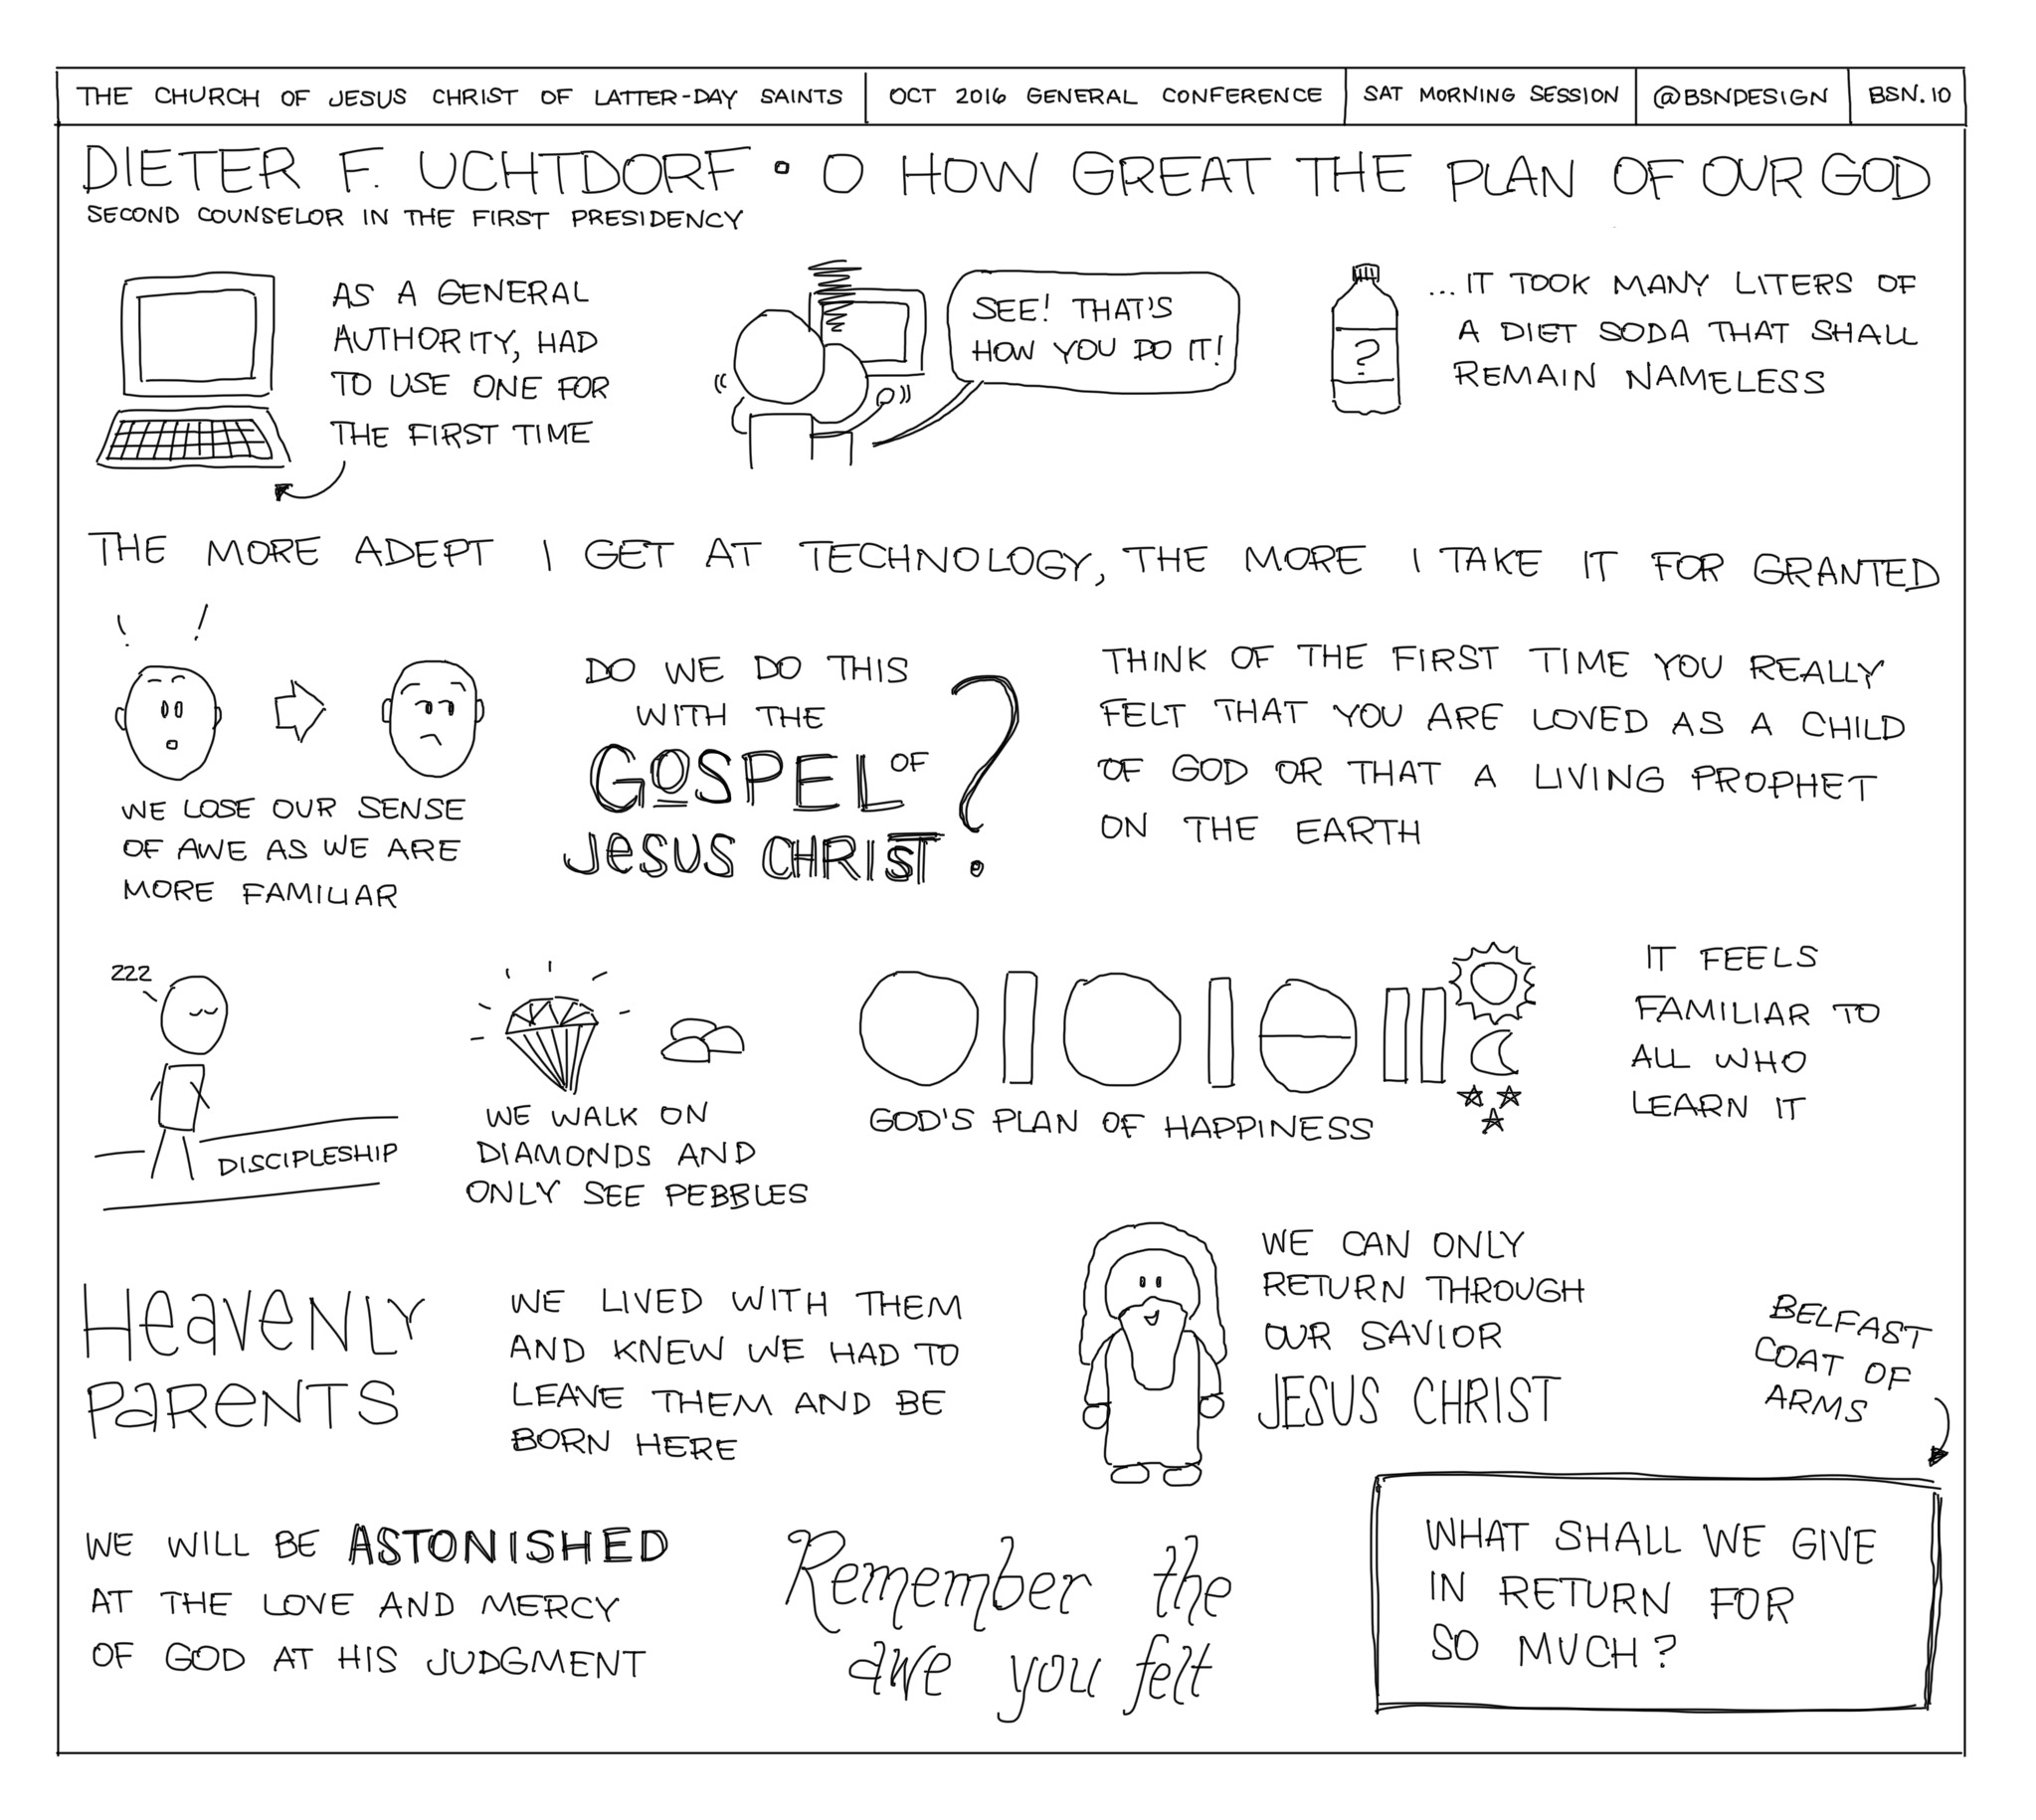 THE CHURCH OF JESUS CHRIST OF LATTER-DAY SAINTS
OCT 2016 GENERAL CONFERENCE
SAT MORNING SESSION
@BSNDESIGN
BSN.10
DIETER F. UCHTDORF • O HOW GREAT THE PLAN OF OUR GOD
SECOND COUNSELOR IN THE FIRST PRESIDENCY
AS A GENERAL
AUTHORITY, HAD
TO USE ONE FOR
THE FIRST TIME
SEE! THAT'S
HOW YOU DO IT!
?
...IT TOOK MANY LITERS OF
A DIET SODA THAT SHALL
REMAIN NAMELESS
THE MORE ADEPT I GET AT TECHNOLOGY, THE MORE I TAKE IT FOR GRANTED
! !
WE LOSE OUR SENSE
OF AWE AS WE ARE
MORE FAMILIAR
DO WE DO THIS
WITH THE
GOSPEL OF
JESUS CHRIST?
THINK OF THE FIRST TIME YOU REALLY
FELT THAT YOU ARE LOVED AS A CHILD
OF GOD OR THAT A LIVING PROPHET
ON THE EARTH
ZZZ
DISCIPLESHIP
WE WALK ON
DIAMONDS AND
ONLY SEE PEBBLES
GOD'S PLAN OF HAPPINESS
IT FEELS
FAMILIAR TO
ALL WHO
LEARN IT
HEAVENLY
PARENTS
WE LIVED WITH THEM
AND KNEW WE HAD TO
LEAVE THEM AND BE
BORN HERE
WE CAN ONLY
RETURN THROUGH
OUR SAVIOR
JESUS CHRIST
BELFAST
COAT OF
ARMS
WE WILL BE ASTONISHED
AT THE LOVE AND MERCY
OF GOD AT HIS JUDGMENT
Remember the
awe you felt
WHAT SHALL WE GIVE
IN RETURN FOR
SO MUCH?